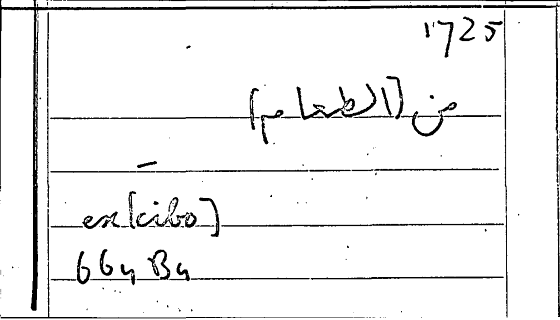 1725
من [الطعام]
–
ex [cibo]
664 B4